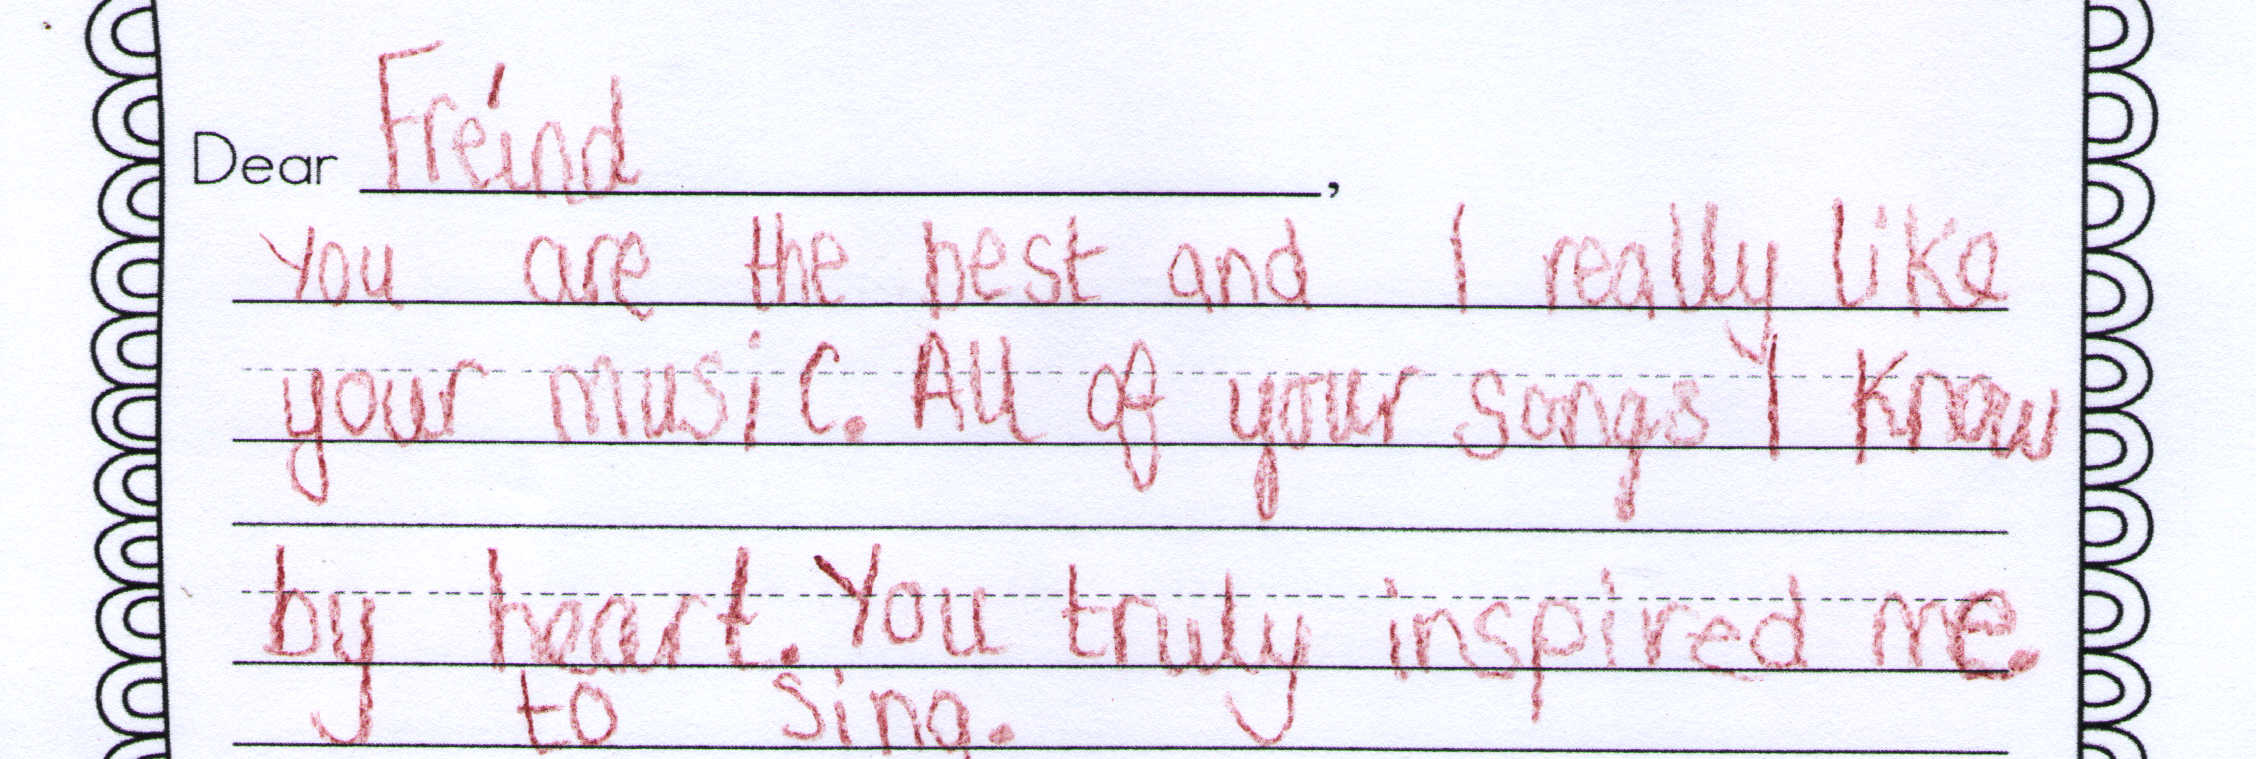 Dear Freind,
You are the best and I really like
your music. All of your songs I know
by heart. You truly inspired me.
to sing.